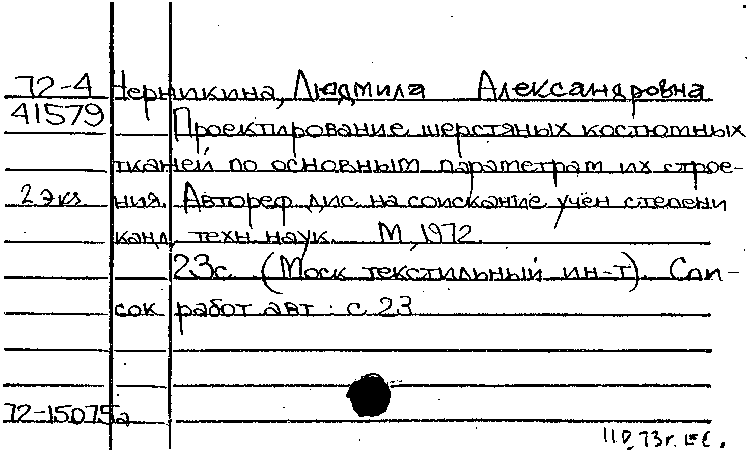 72-4 Черникина, Людмила Александровна
41579 Проектирование шерстяных костюмных
тканей по основным параметрам их строе-
2 экз ния. Автореф дис. на соискание учён степени
канд. техн. наук. М, 1972.
23с. (Моск текстильный ин-т). Спи-
сок работ авт: с 23
72-15075а
73г.